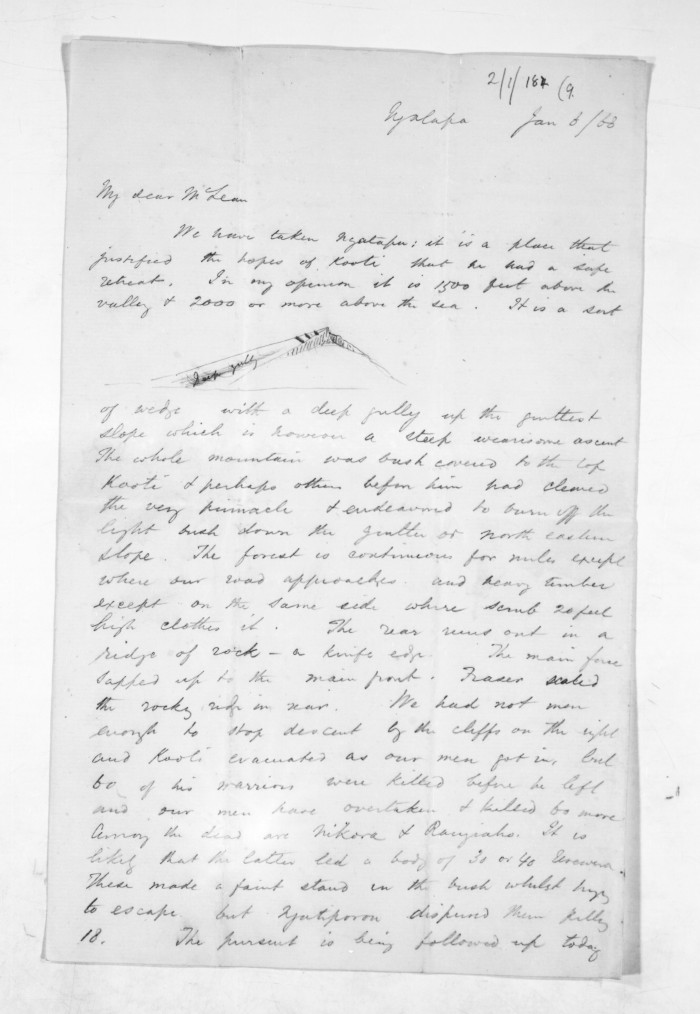 2/1/18 (9.
Ngatapa Jan 6/68
My dear McLean
We have taken Ngatapa; it is a place that
justified the hopes of Kooti that he had a safe
retreat. In my opinion it is 1500 feet above the
valley & 2000 or more above the sea. It is a sort
Deep gully
of wedge with a deep gully up the gentlest
slope which is however a steep wearisome ascent
The whole mountain was bush covered to the top
Kooti & perhaps others before him had cleared
the very pinnacle & endeavored to burn off the
light bush down the gentler or north eastern
slope. The forest is continuous for miles except
where our road approaches. and heavy timber
except on the same side where scrub 20 feet
high clothes it. The rear runs out in a
ridge of rock - a knife edge. The main force
sapped up to the main front. Fraser scaled
the rocky ridge in rear. We had not men
enough to stop descent by the cliffs on the right
and Kooti evacuated as our men got in, but
60 of his warriors were killed before he left
and our men have overtaken & killed 60 more
Among the dead are Nikora & Rangiaho. It is
likely that the latter led a body of 30 or 40 Urewera.
These made a faint stand in the bush whilst
to escape but Ngatiporou dispersed them killing
18. The pursuit is being followed up today